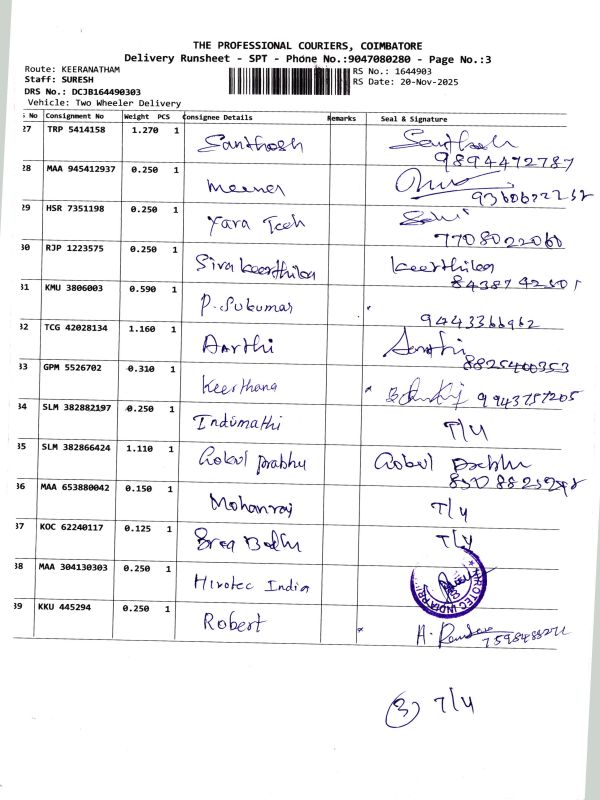 THE PROFESSIONAL COURIERS, COIMBATORE
Delivery Runsheet - SPT - Phone No.:9047080280 - Page No.:3
Route: KEERANATHAM
RS No.: 1644903
Staff: SURESH
RS Date: 20-Nov-2025
DRS No.: DCJB164490303
Vehicle: Two Wheeler Delivery
S No Consignment No Weight PCS Consignee Details Remarks Seal & Signature
27 TRP 5414158 1.270 1 Santhosh Santhosh
9894472787
28 MAA 945412937 0.250 1 Meener
29 HSR 7351198 0.250 1 Yara Tech
7708022060
30 RJP 1223575 0.250 1 Sivakeerthika Keerthika
31 KMU 3806003 0.590 1 P. Sukumar
9443366962
32 TCG 42028134 1.160 1 Aarthi Aarthi
8825400353
33 GPM 5526702 0.310 1 Keerthana 9943757205
34 SLM 382882197 0.250 1 Indumathi T/4
35 SLM 382866424 1.110 1 Gokul prabhu Gokul
36 MAA 653880042 0.150 1 Mohanraj T/4
37 KOC 62240117 0.125 1 T/4
38 MAA 304130303 0.250 1 Hirotec India
HIROTEC INDIA
39 KKU 445294 0.250 1 Robert
3 T/4